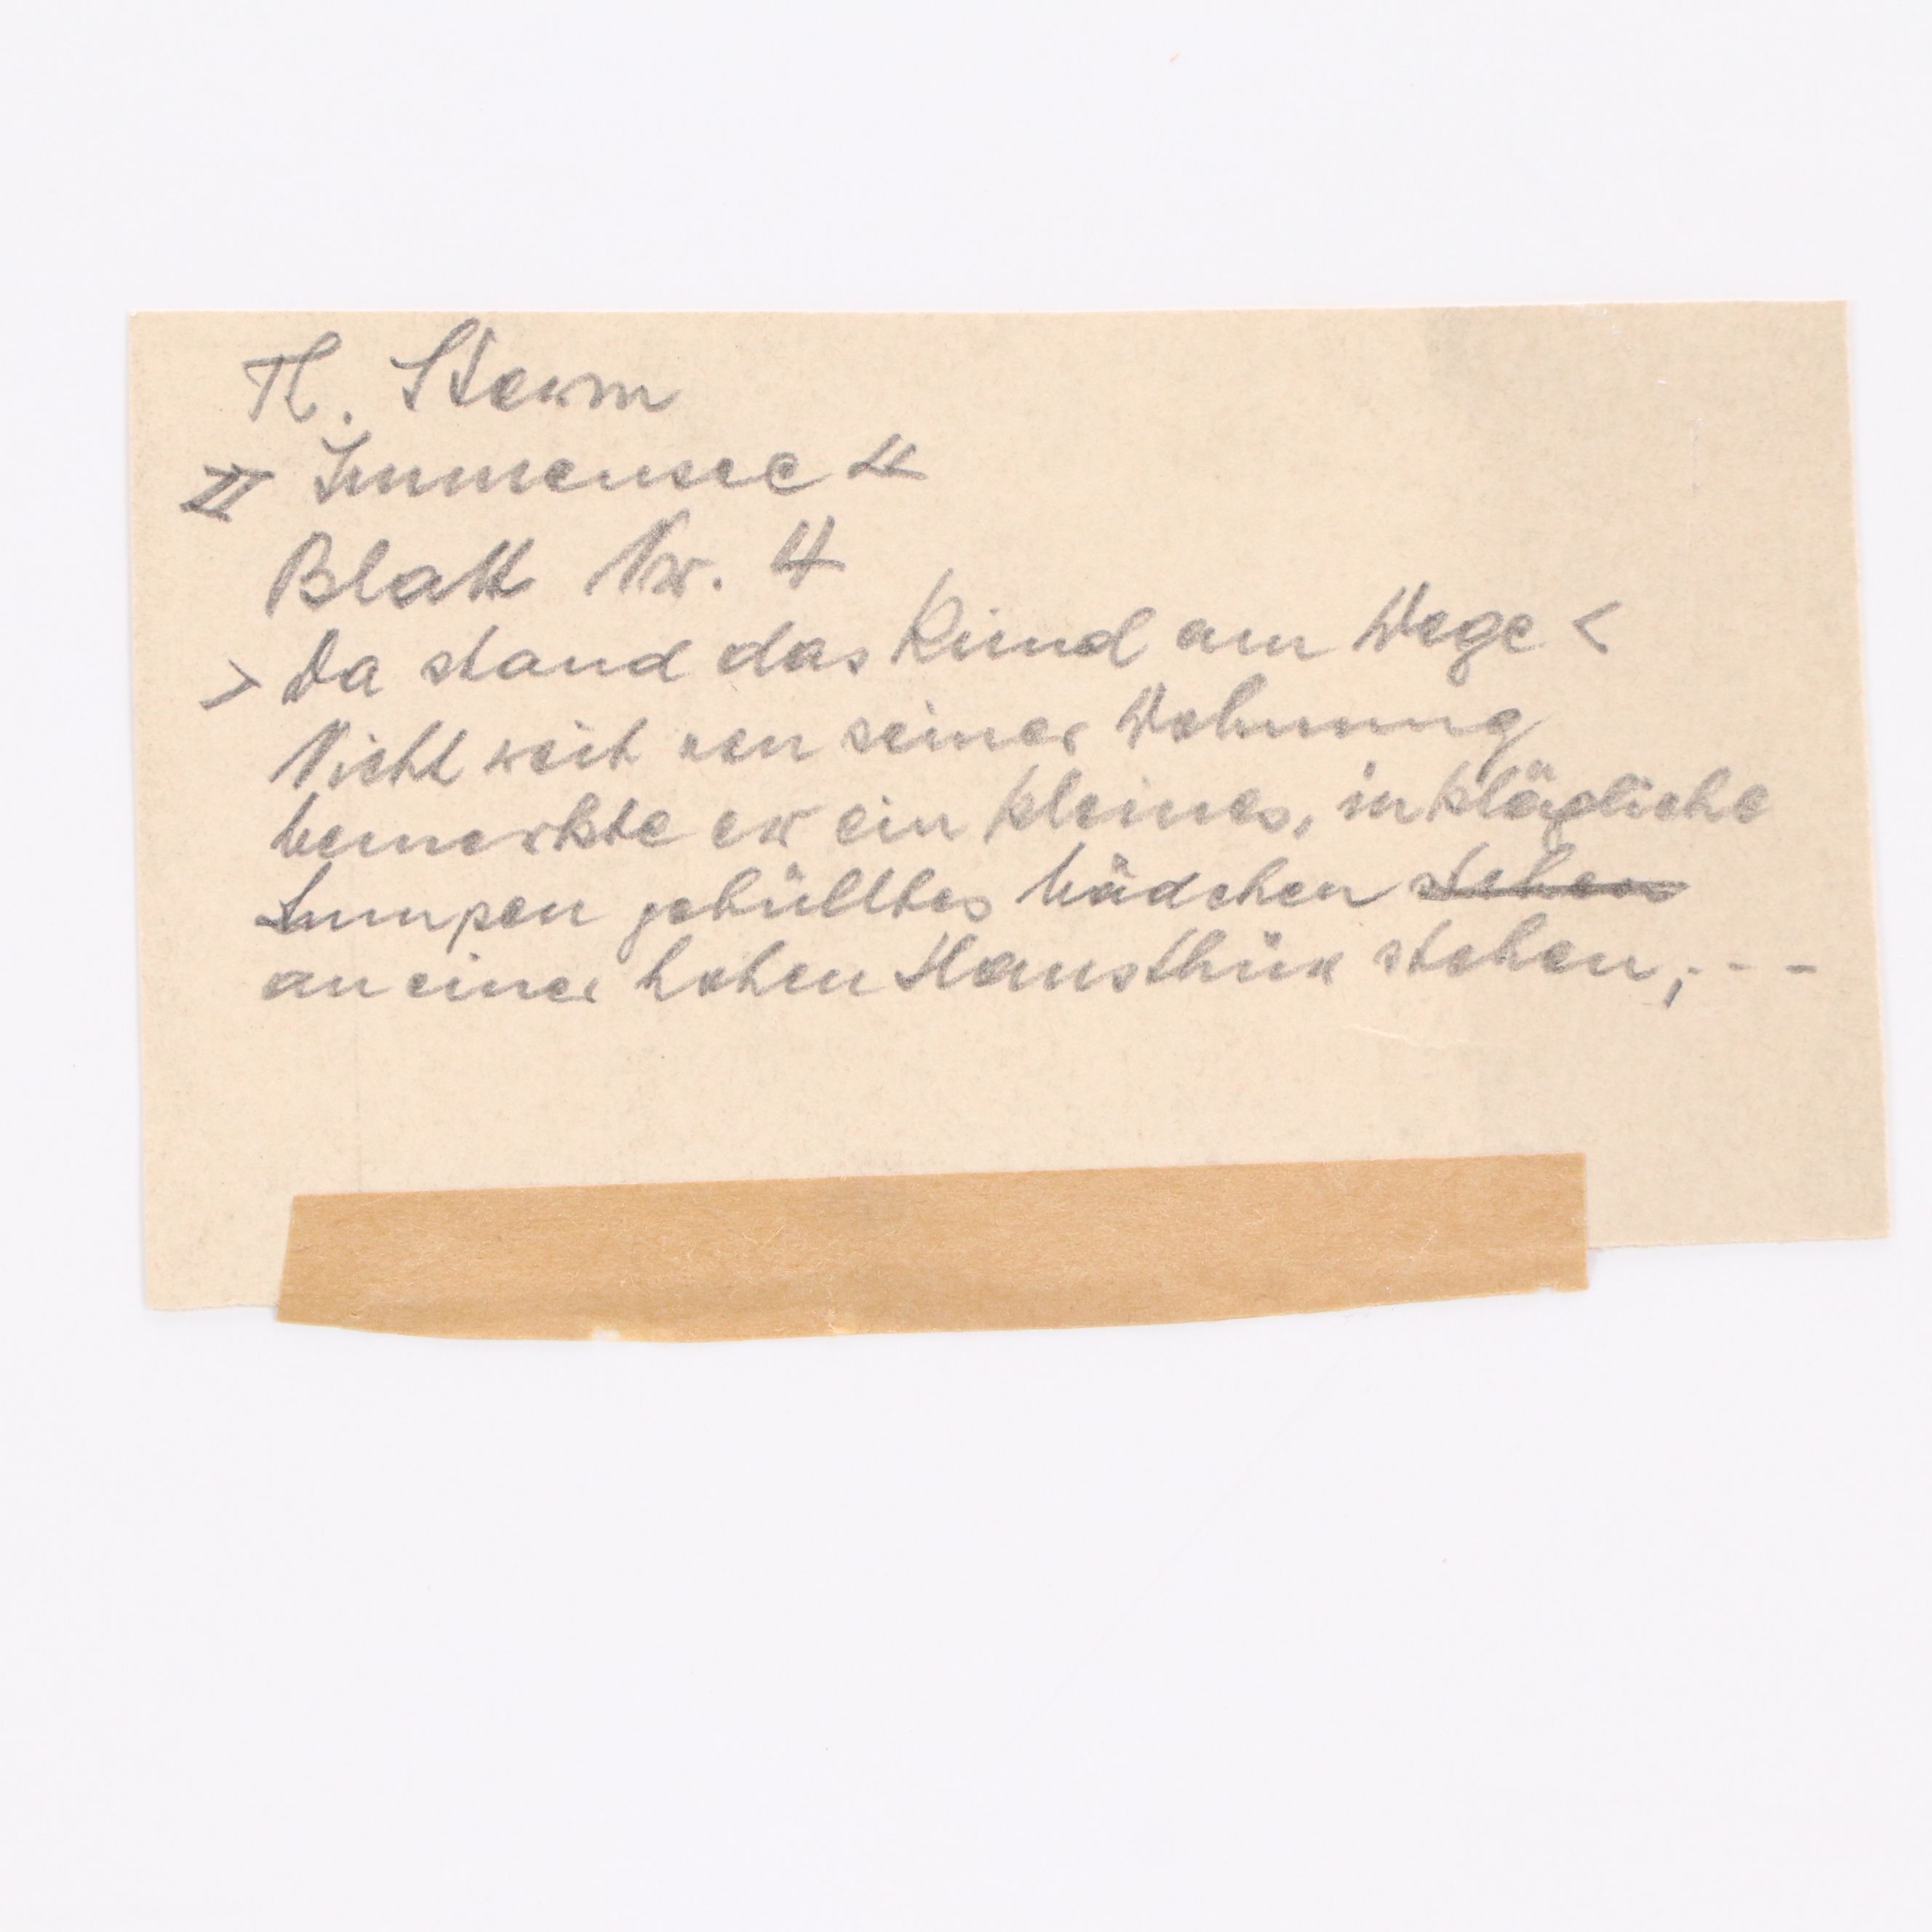 Th. Storm
"Immensee"
Blatt Nr. 4
> Da stand das Kind am Wege <
Nicht weit von seiner Wohnung
bemerkte er ein kleines, in klägliche
Lumpen gehülltes Mädchen stehen
an einer hohen Hausthür stehen, - - -